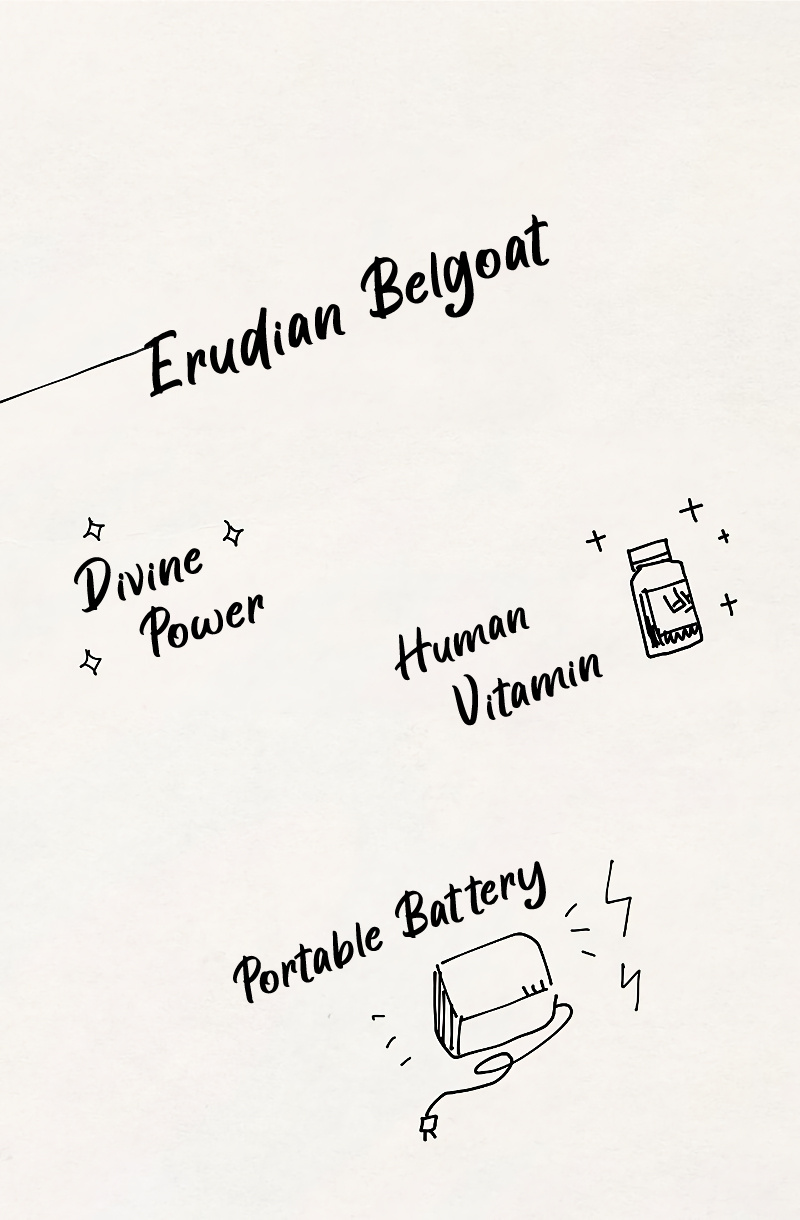 Erudian Belgoat
Divine
Power
Human
Vitamin
Portable Battery